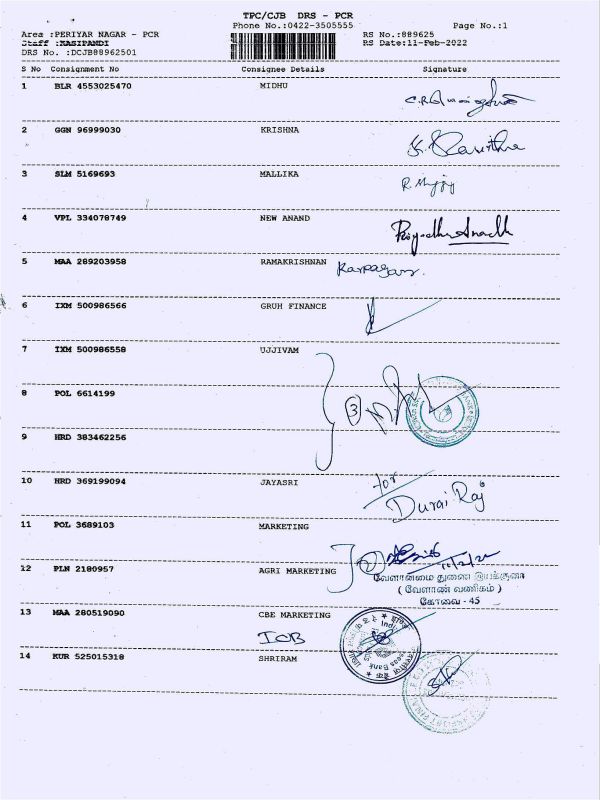 TPC/CJB DRS - PCR
Phone No.:0422-3505555 Page No.:1
Area :PERIYAR NAGAR - PCR RS No.:889625
Staff :MASIPANDI RS Date:11-Feb-2022
DRS No. :DCJB88962501
S No Consignment No Consignee Details Signature
1 BLR 4553025470 MIDHU
2 GGN 96999030 KRISHNA
3 SLM 5169693 MALLIKA
4 VPL 334078749 NEW ANAND
5 MAA 289203958 RAMAKRISHNAN Karpagam.
6 IXM 500986566 GRUH FINANCE
7 IXM 500986558 UJJIVAM
8 POL 6614199 3
9 HRD 383462256
10 HRD 369199094 JAYASRI for
Durai Raj
11 POL 3689103 MARKETING
2 11/2/22
12 PLN 2180957 AGRI MARKETING வேளாண்மை துணை இயக்குனர்
( வேளாண் வணிகம் )
கோவை - 45
13 MAA 280519090 CBE MARKETING
IOB
14 KUR 525015318 SHRIRAM